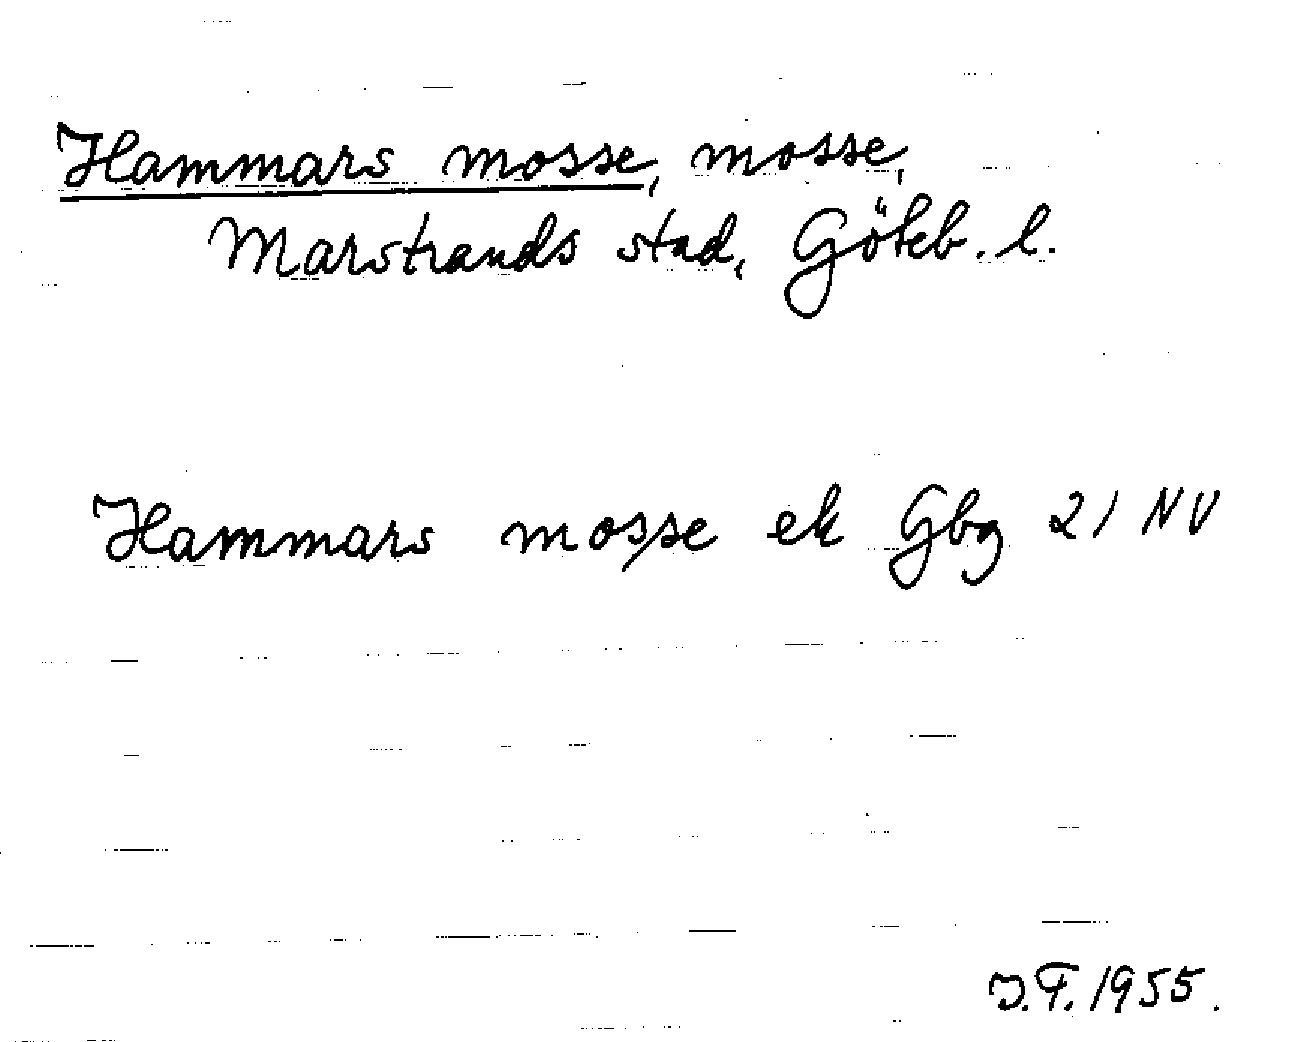 Hammars mosse, mosse,
Marstrands stad, Göteb. l.
Hammars mosse ek Gbg 21 NV
J.F. 1955.